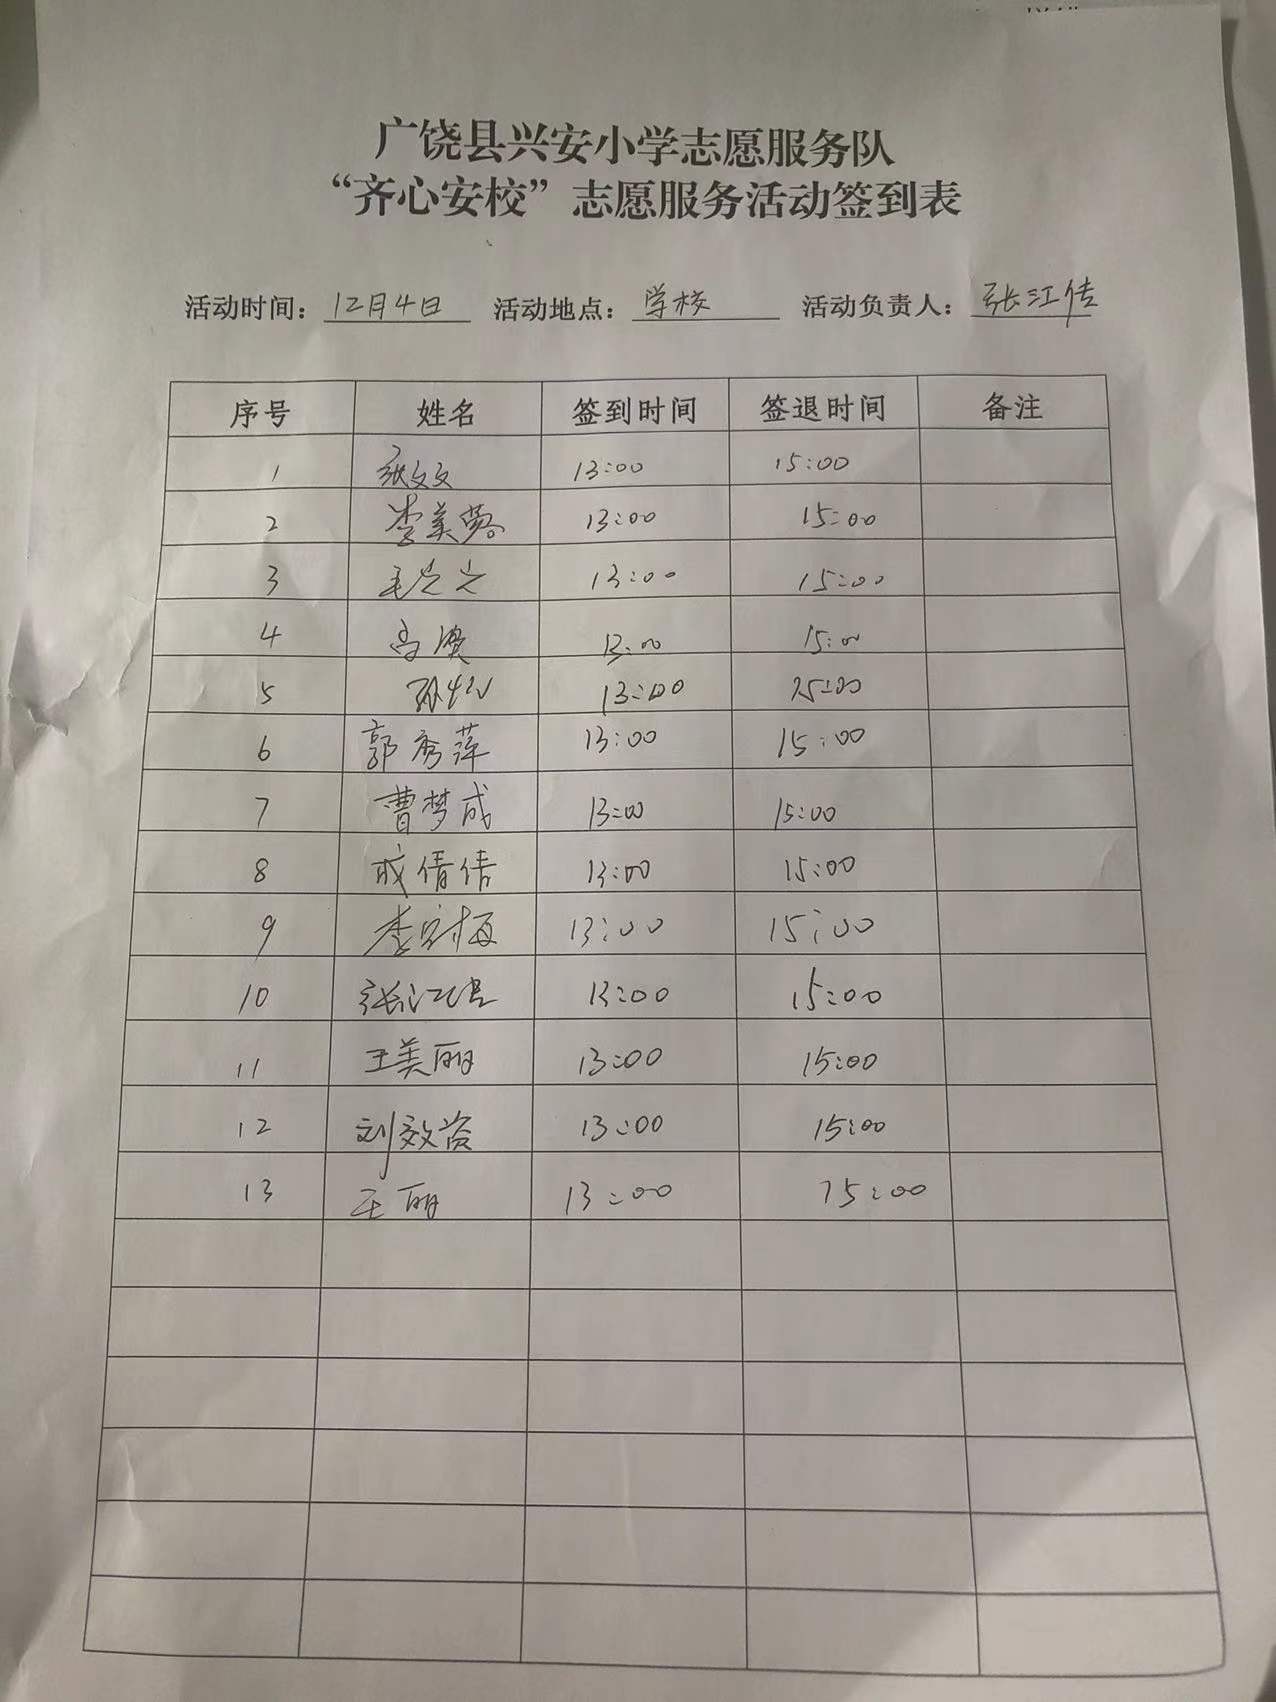 广饶县兴安小学志愿服务队
“齐心安校”志愿服务活动签到表
活动时间：12月4日 活动地点：学校 活动负责人：张江传
序号 姓名 签到时间 签退时间 备注
1 张文文 13:00 15:00
2 李美蓉 13:00 15:00
3 13:00 15:00
4 13:00 15:00
5 13:00 15:00
6 郭秀萍 13:00 15:00
7 曹梦成 13:00 15:00
8 成倩倩 13:00 15:00
9 13:00 15:00
10 13:00 15:00
11 王美丽 13:00 15:00
12 刘效谷 13:00 15:00
13 王丽 13:00 15:00